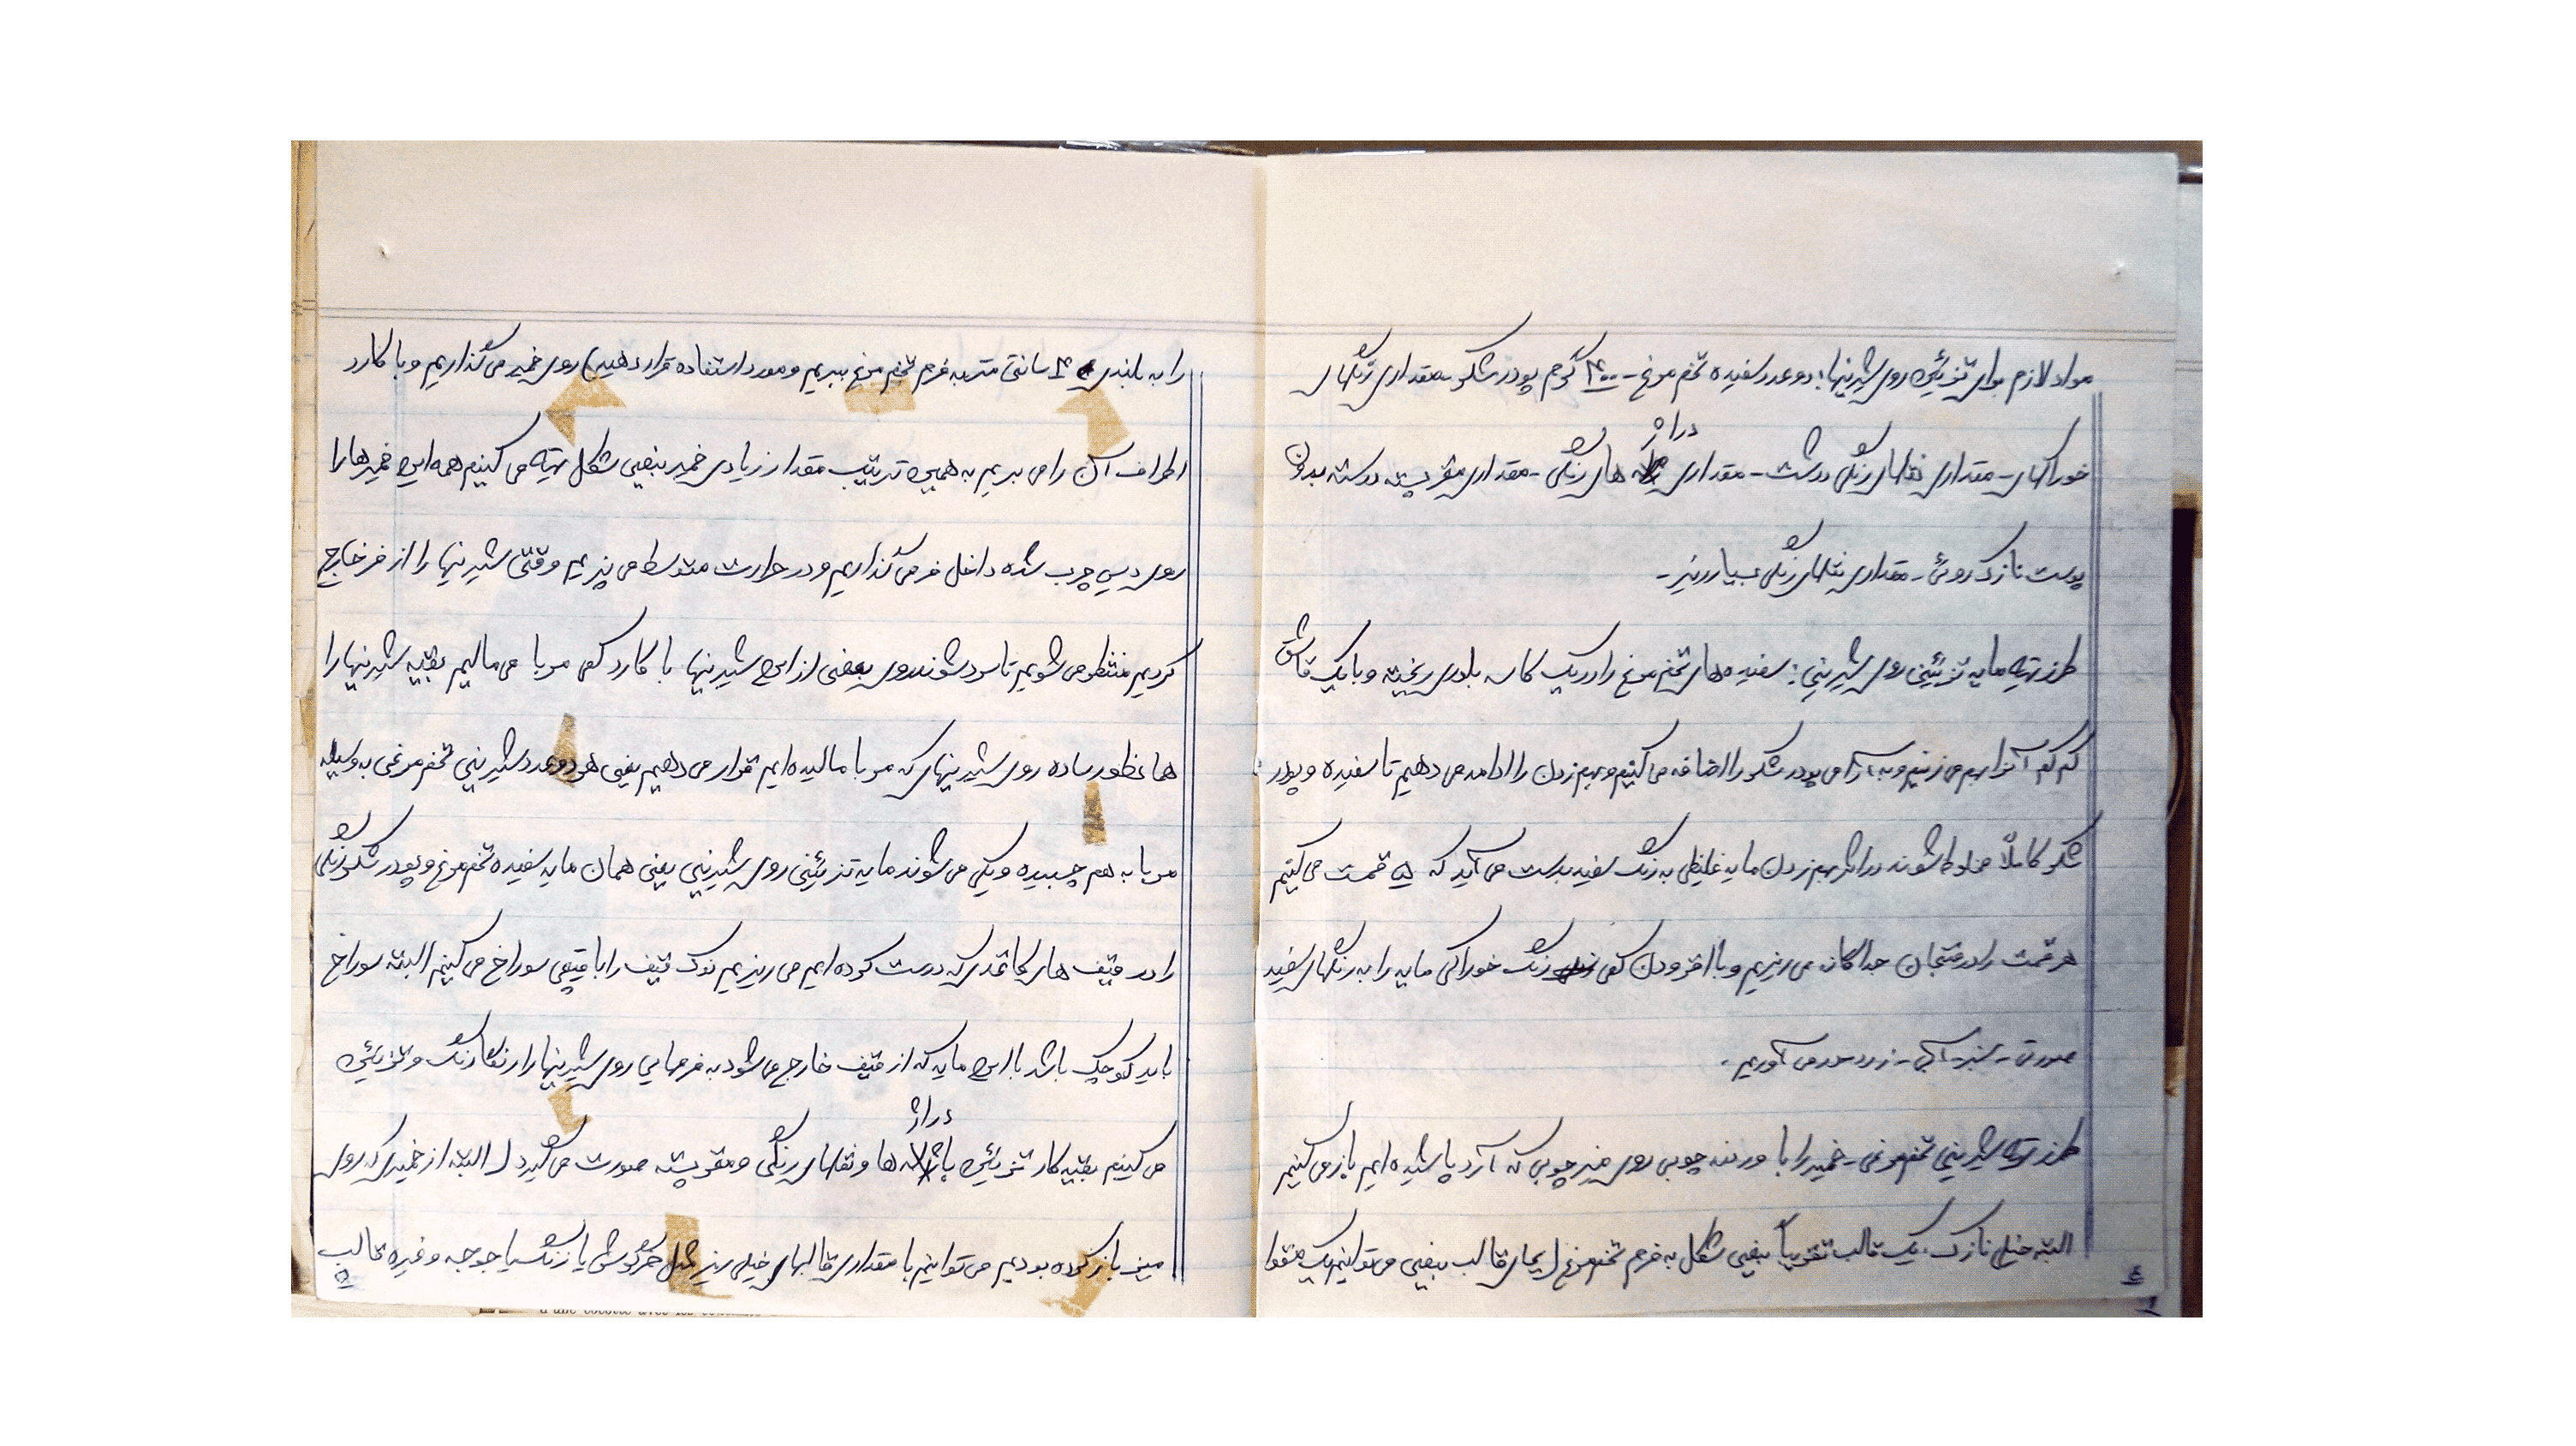 مواد لازم برای تزئین روی شیرینیها: دو عدد سفیده تخم مرغ - ۴۰۰ گرم پودر شکر - مقداری رنگهای
خوراکی - مقداری نقلهای رنگی درشت - مقداری دراژ های رنگی - مقداری مغز پسته درسته بدون
پوست نازک روئی - مقداری نقلهای رنگی بسیار ریز -
طرز تهیه مایه تزئینی روی شیرینی: سفیده های تخم مرغ را در یک کاسه بلوری ریخته و با یک قاشق
کم کم آنرا بهم می زنیم و به آرامی پودر شکر را اضافه می کنیم و بهم زدن را ادامه می دهیم تا سفیده و پودر
شکر کاملاً مخلوط شوند در اثر بهم زدن مایه غلیظی به رنگ سفید بدست می آید که ۵ قسمت می کنیم
هر قسمت را در فنجان جداگانه می ریزیم و با افزودن کمی رنگ خوراکی مایه را به رنگهای سفید
صورتی - سبز - آبی - زرد در می آوریم .
طرز تهیه شیرینی تخم مرغی - خمیر را با وردنه چوبی روی میز چوبی که آرد پاشیده ایم باز می کنیم
البته خیلی نازک . یک قالب تقریباً بیضی شکل به فرم تخم مرغ (بجای قالب بیضی می توانیم یک مقوا
۴
را به بلندی ۴ سانتی متر به فرم تخم مرغ ببریم و مورد استفاده قرار دهید) روی خمیر می گذاریم و با کارد
اطراف آن را می بریم به همین ترتیب مقدار زیادی خمیر بیضی شکل تهیه می کنیم همه این خمیرها را
روی سینی چرب شده داخل فر می گذاریم و در حرارت متوسط می پزیم وقتی شیرینیها را از فر خارج
کردیم منتظر می شویم تا سرد شوند روی بعضی از این شیرینیها با کارد کمی مربا می مالیم بقیه شیرینیها را
همانطور ساده روی شیرینیهای که مربا مالیده ایم قرار می دهیم یعنی هر دو عدد شیرینی تخم مرغی به وسیله
مربا به هم چسبیده و یکی می شوند مایه تزئینی روی شیرینی یعنی همان مایه سفیده تخم مرغ و پودر شکر رنگی
را در قیف های کاغذی که درست کرده ایم می ریزیم نوک قیف را با قیچی سوراخ می کنیم البته سوراخ
باید کوچک باشد با این مایه که از قیف خارج می شود به فرمهایی روی شیرینیها را رنگارنگ و تزئین
می کنیم بقیه کار تزئین با دراژ ها و نقلهای رنگی و مغز پسته صورت می گیرد (البته از خمیری که روی
میز باز کرده بودیم می توانیم با مقداری قالبهای خیلی ریز مثل خرگوش یا زنگ یا جوجه و غیره قالب
۵